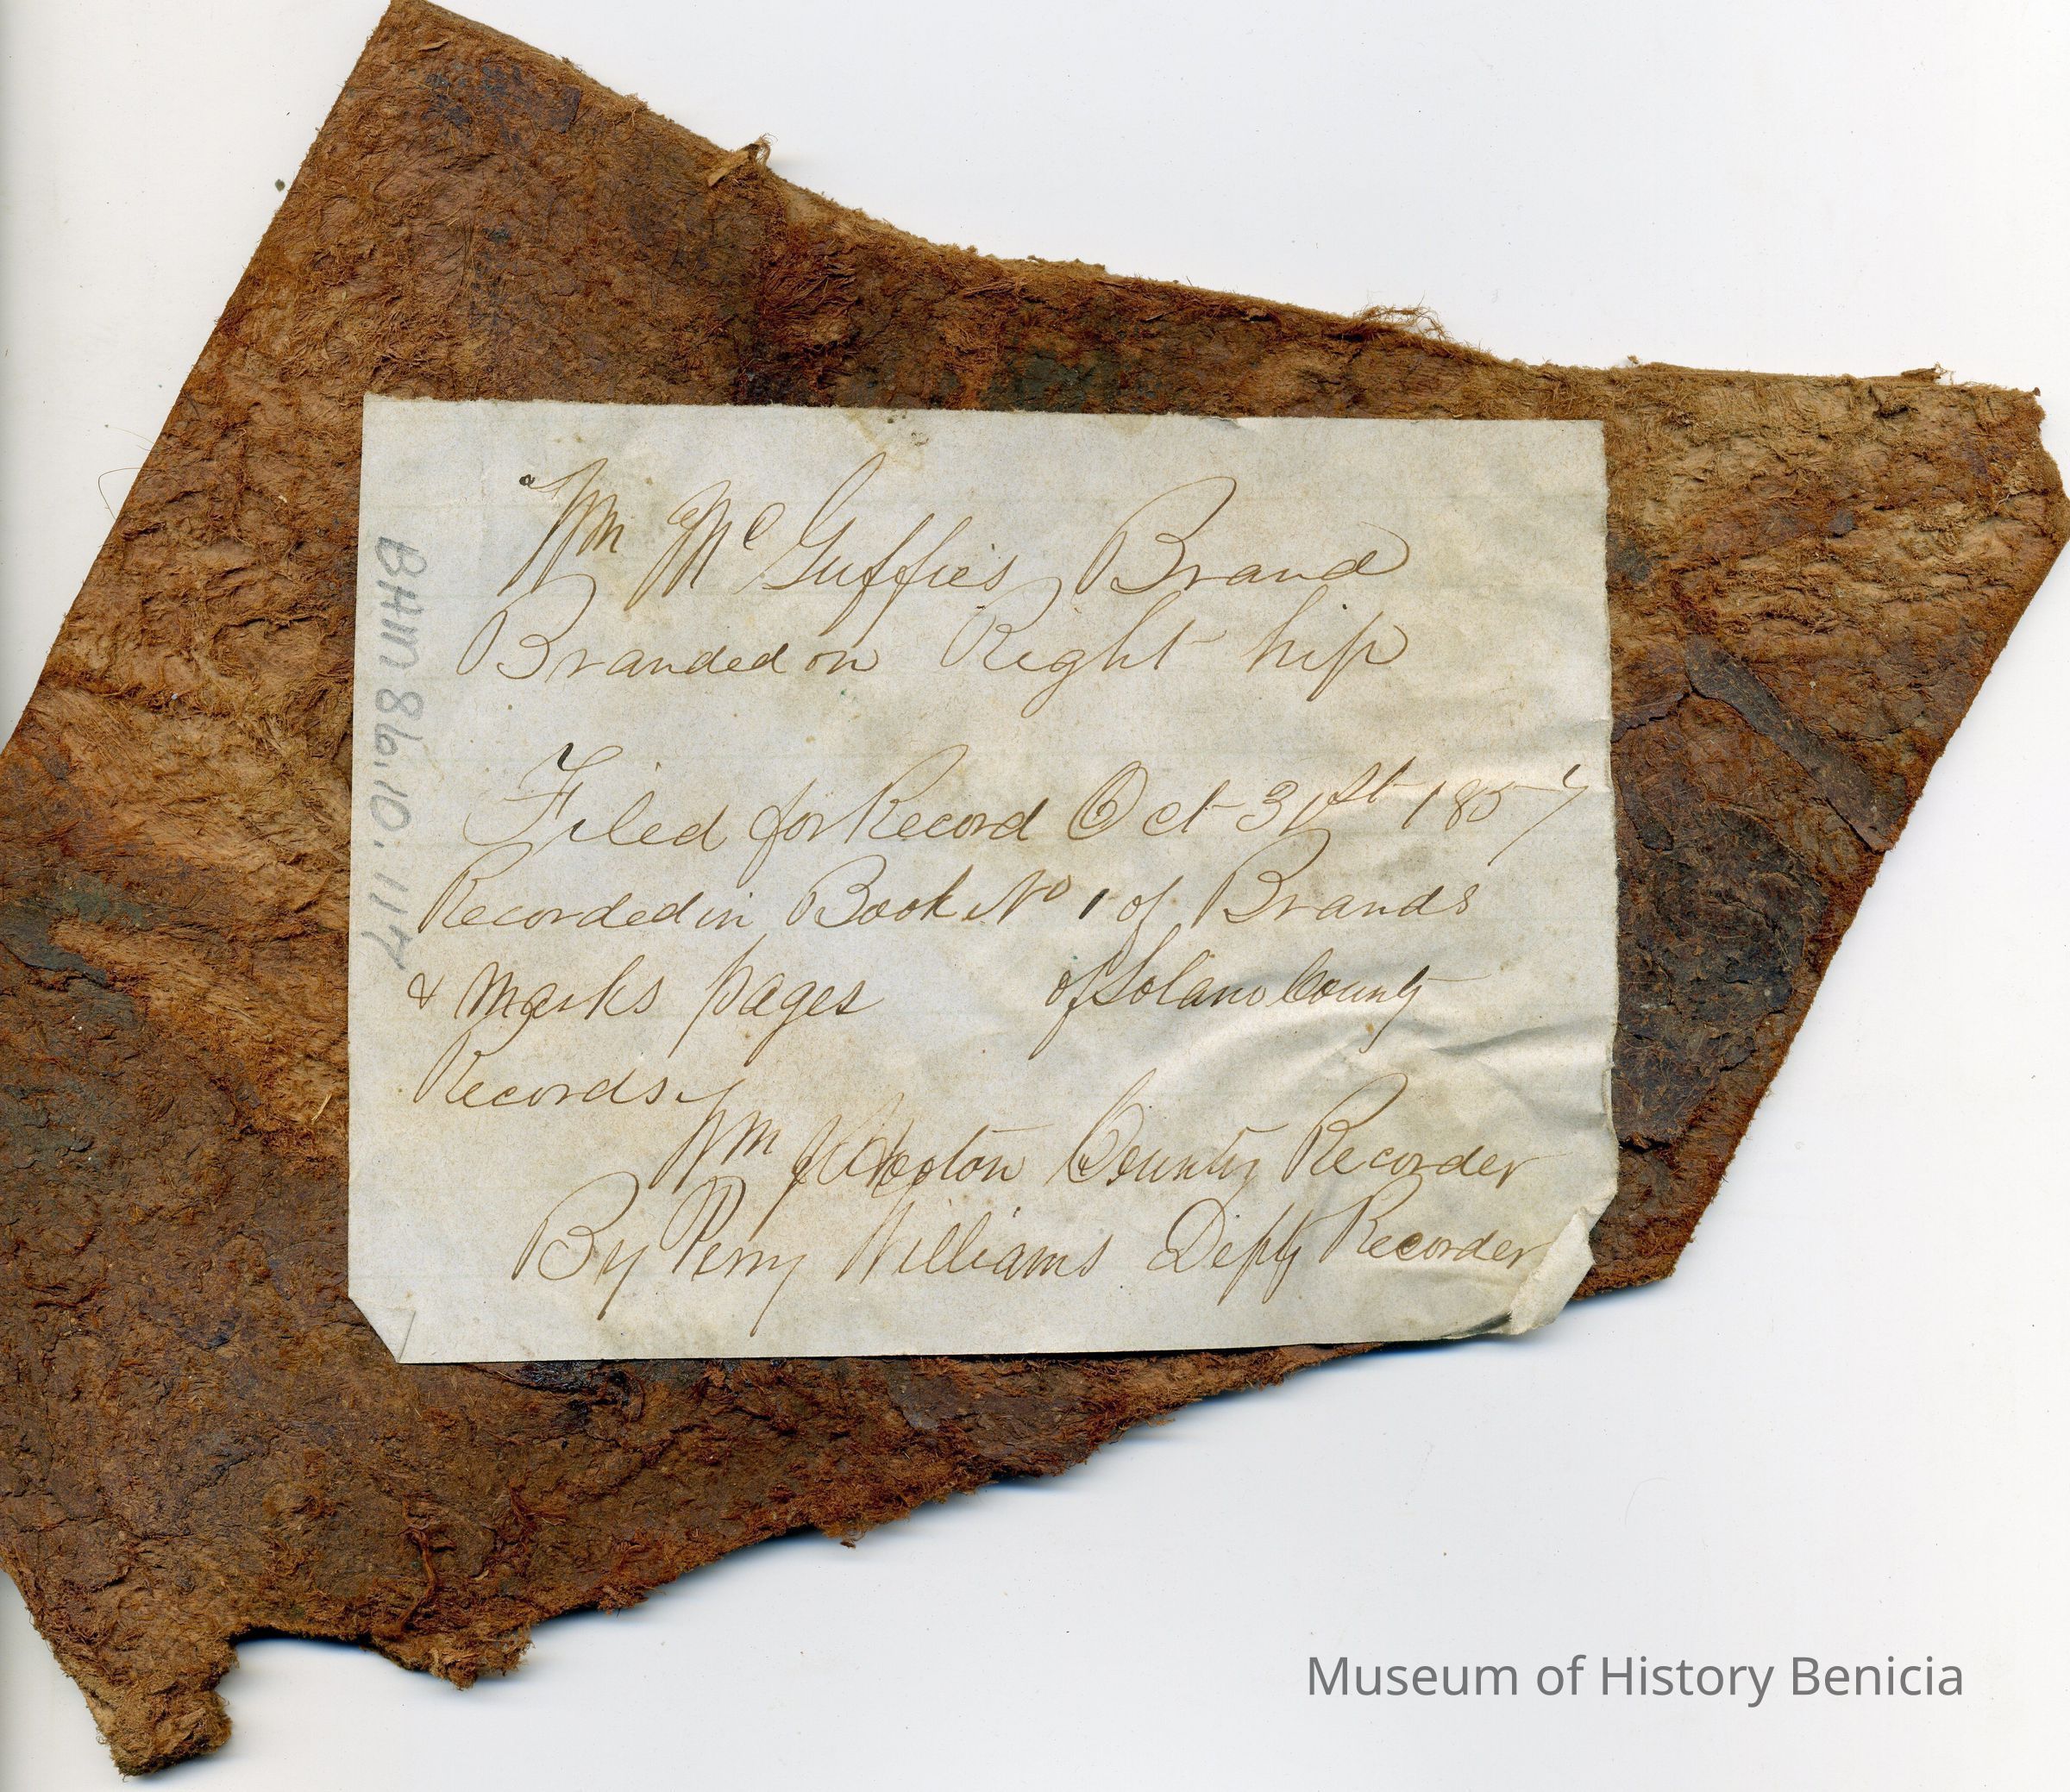 Wm McGuffies Brand
Branded on Right hip
Filed for Record Oct 31st 1857
Recorded in Book No 1 of Brands
& Marks pages of Solano County
Records
Wm County Recorder
By Perry Williams Depty Recorder
BHM 86.10.117
Museum of History Benicia